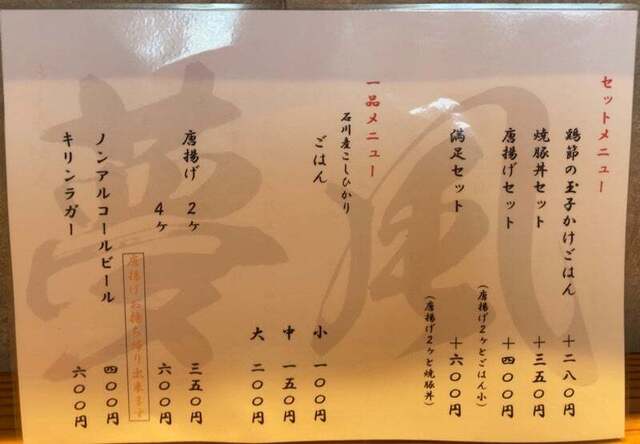 セットメニュー
鶏節の玉子かけごはん ＋二八〇円
焼豚丼セット ＋三五〇円
唐揚げセット ＋四〇〇円
（唐揚げ２ヶとごはん小）
満足セット ＋六〇〇円
（唐揚げ２ヶと焼豚丼）
一品メニュー
石川産こしひかり
ごはん 小 一〇〇円
中 一五〇円
大 二〇〇円
唐揚げ ２ヶ 三五〇円
４ヶ 六〇〇円
唐揚げお持ち帰り出来ます
ノンアルコールビール 四〇〇円
キリンラガー 六〇〇円
夢風